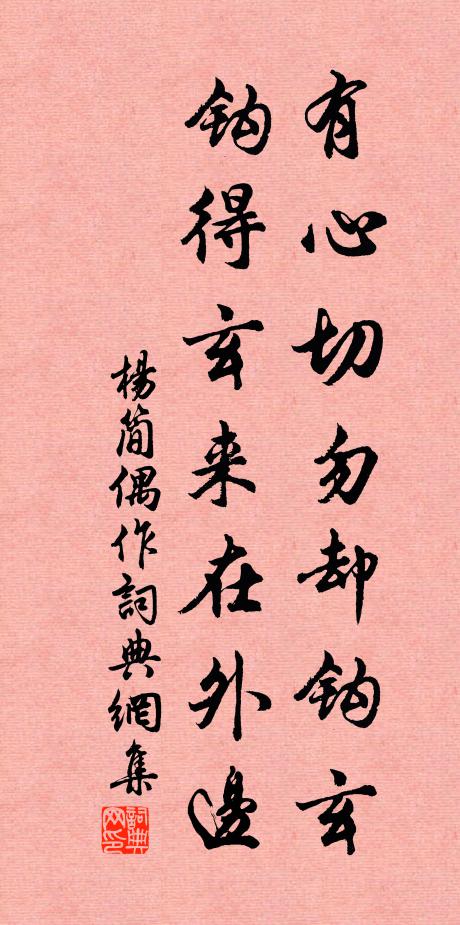 有心切勿却鈎玄
鈎得玄来在外邊
楊簡偶作詞典網集
詞典网印